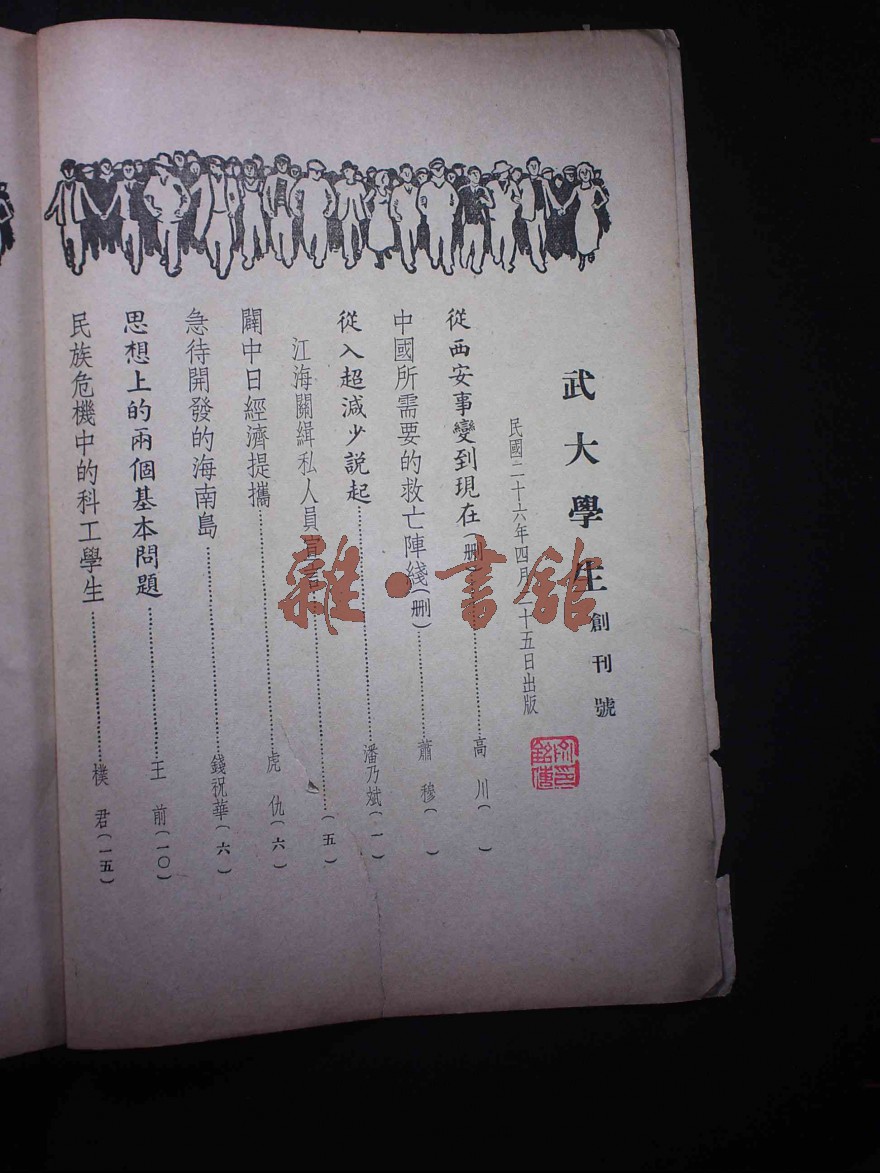 武大學生創刊號
民國二十六年四月二十五日出版
從西安事變到現在(刪)……高川( )
中國所需要的救亡陣綫(刪)……蕭穆( )
從入超減少說起……潘乃斌(一)
江海關緝私人員宣言……(五)
闢中日經濟提攜……虎仇(六)
急待開發的海南島……錢祝華(六)
思想上的兩個基本問題……王前(一〇)
民族危機中的科工學生……樸君(一五)
雜·書館